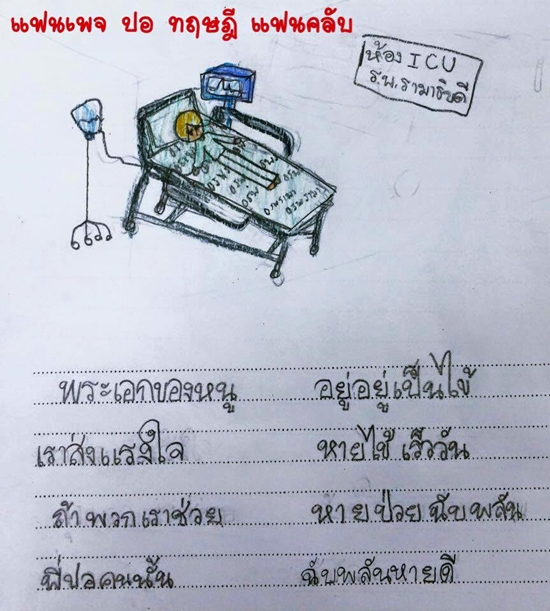 แฟนเพจ ปอ ทฤษฎี แฟนคลับ
ห้อง ICU
ร.พ.รามาธิบดี
พระเอกของหนู อยู่อยู่เป็นไข้
เราส่งแรงใจ หายไข้ เร็ววัน
ถ้าพวกเราช่วย หายป่วยฉับพลัน
พี่ปอคนนั้น ฉับพลันหายดี